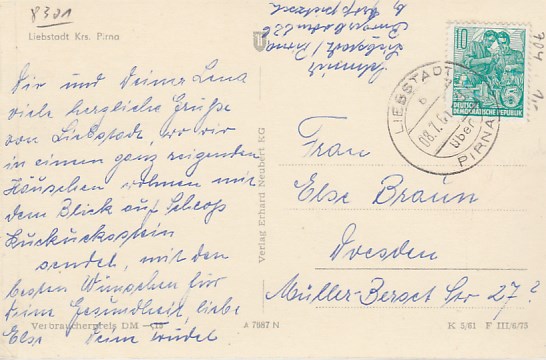 8301
Liebstadt Krs. Pirna
Dir und Deiner Lena
viele herzliche Grüße
von Liebstadt, wo wir
in einem ganz reizenden
Häuschen wohnen mit
dem Blick auf Schloß
Kuckuckstein
sendet, mit den
besten Wünschen für
Deine Gesundheit, liebe
Else Deine Trudel
Verbraucherpreis DM -,15
A 7987 N
Verlag Erhard Neubert KG
Schmidt
Liebstadt / Pirna
b
10
5
DEUTSCHE
DEMOKRATISCHE REPUBLIK
LIEBSTADT
08.7.
über
PIRNA
704
Frau
Else Braun
Dresden
Müller-Berset Str 27?
K 3/61 F III/6/75